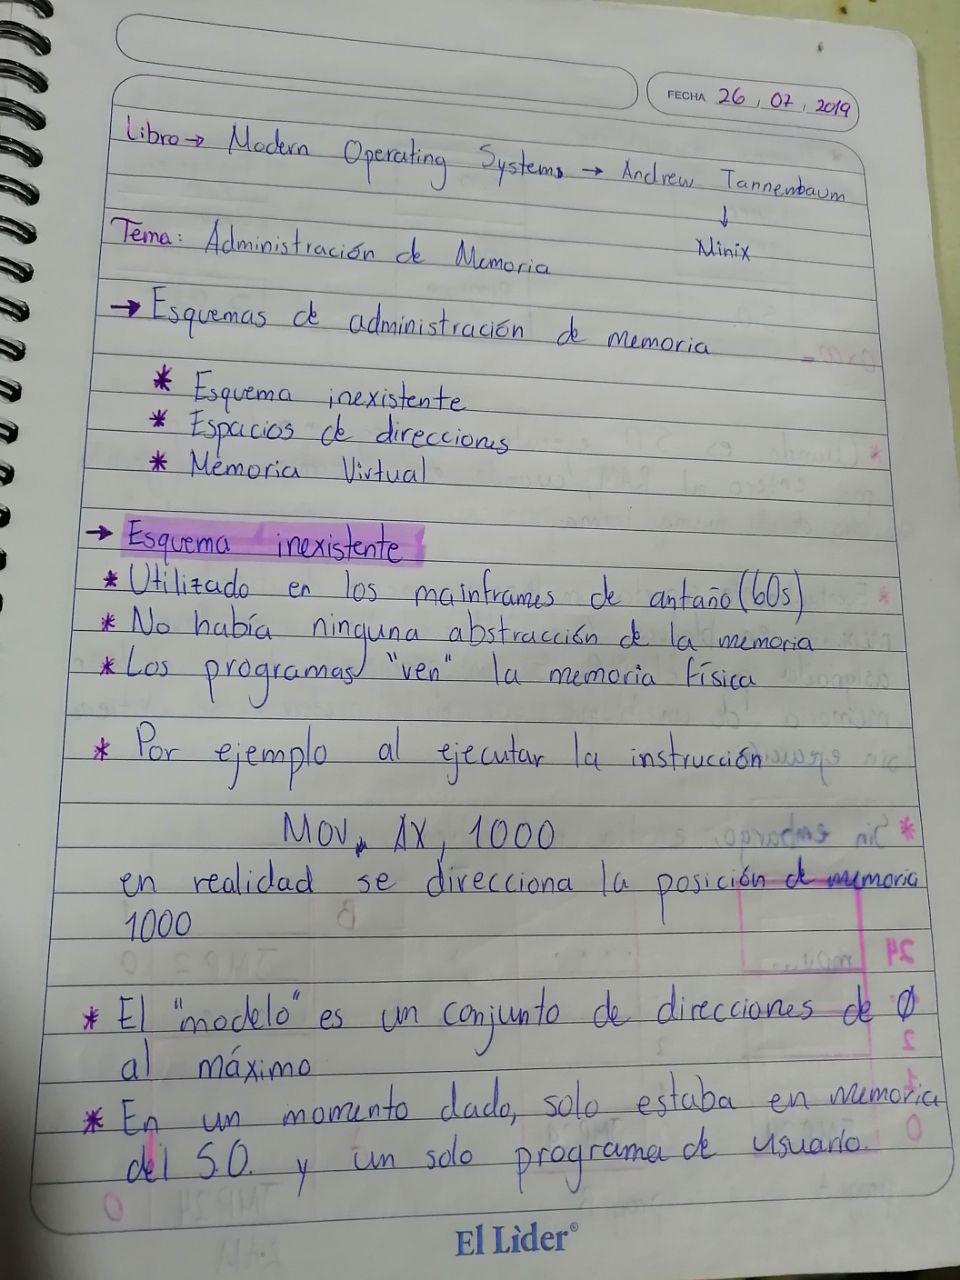 FECHA 26, 07, 2019
Libro → Modern Operating Systems → Andrew Tannenbaum
↓
Minix
Tema: Administración de Memoria
→ Esquemas de administración de memoria
* Esquema inexistente
* Espacios de direcciones
* Memoria Virtual
→ Esquema inexistente
* Utilizado en los mainframes de antaño (60s)
* No había ninguna abstracción de la memoria
* Los programas "ven" la memoria física
* Por ejemplo al ejecutar la instrucción
MOV AX, 1000
en realidad se direcciona la posición de memoria
1000
* El "modelo" es un conjunto de direcciones de Ø
al máximo
* En un momento dado, solo estaba en memoria
del S.O. y un solo programa de usuario.
El Lìder®